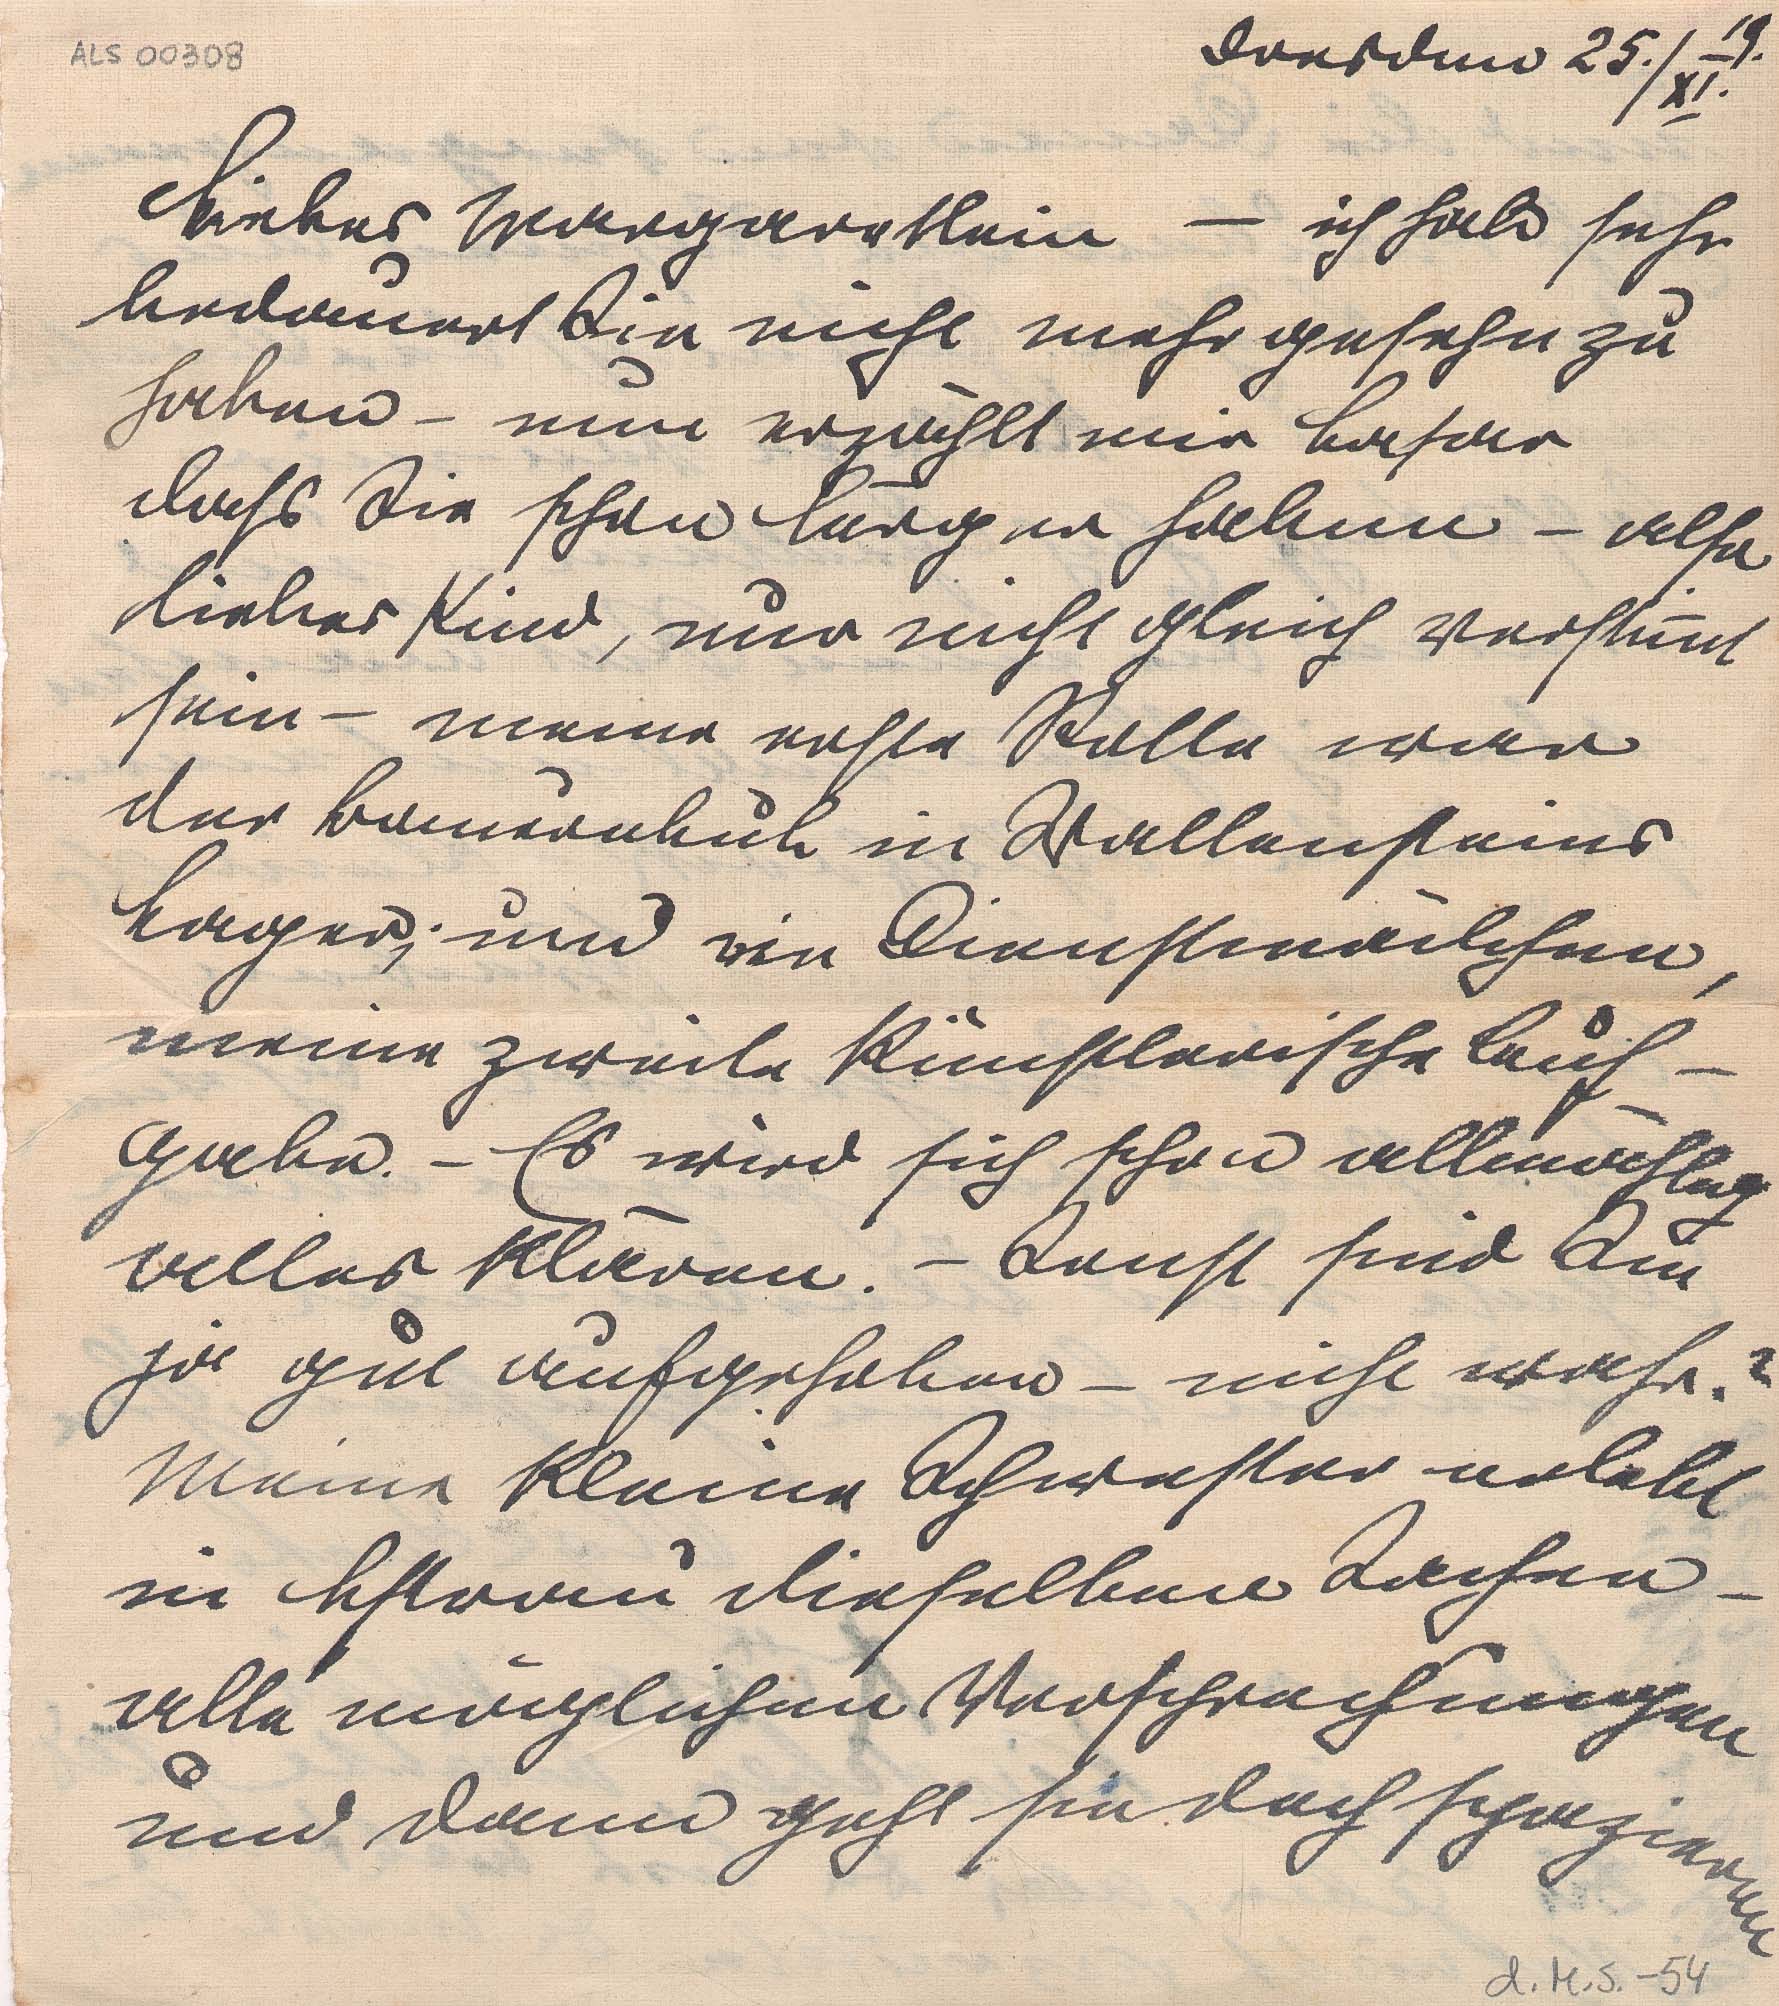 ALS 00308
Dresden 25./XI. 19.
Liebes Margaretlein – ich hab sehr
bedauert Sie nicht mehr gesehn zu
haben – nun erzählt mir
dass Sie schon Ärger haben – also
liebes Kind, nur nicht gleich verstimt
sein – meine erste Rolle war
der Bauernbub in Wallensteins
Lager; und ein Dienstmädchen,
meine zweite Künstlerische Auf-
gabe. – Es wird sich schon allmählig
alles klären. – Sonst sind Sie
ja gut aufgehoben – nicht wahr?
Meine kleine Schwester erlebt
in dieselben Sachen –
alle möglichen Versprechungen
und dann geht sie doch spazieren
d.M.S. – 54